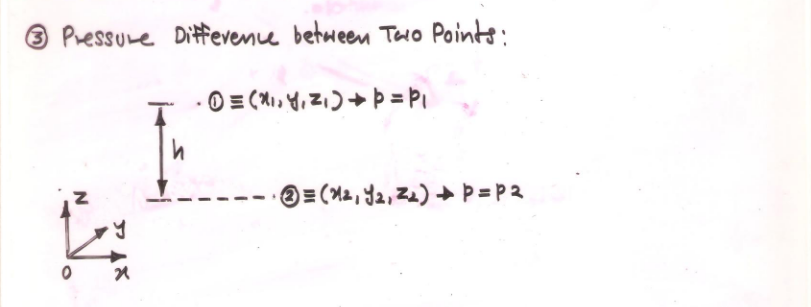 ③ Pressure Difference between Two Points:
· ① ≡ (x1, y, z1) → p = p1
h
· ② ≡ (x2, y2, z2) → p = p2
z
y
0 x